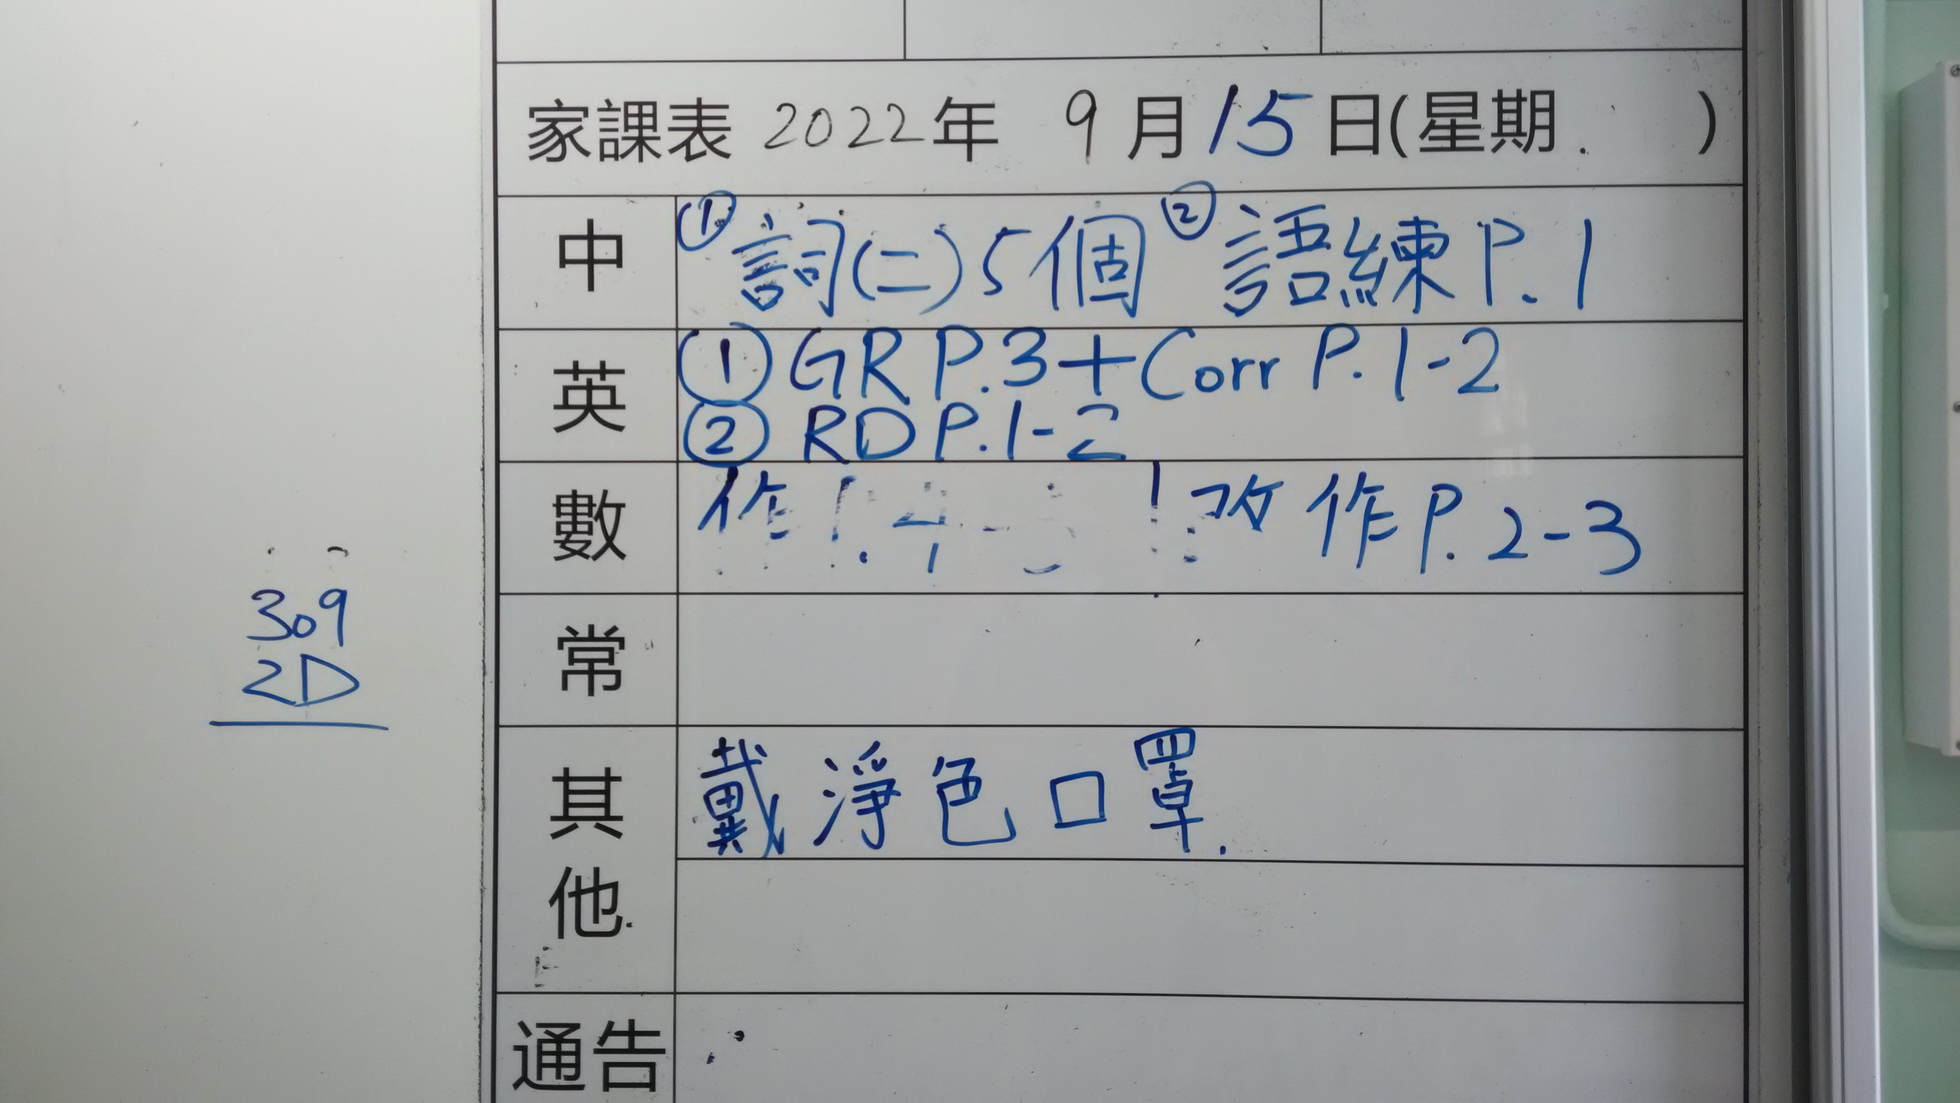 家課表 2022年 9月15日(星期 )
中 ① 詞(二)5個 ② 語練P.1
英 ① GR P.3+Corr P.1-2
② RD P.1-2
數 作 改 作P.2-3
常
309
2D
其他 戴淨色口罩.
通告